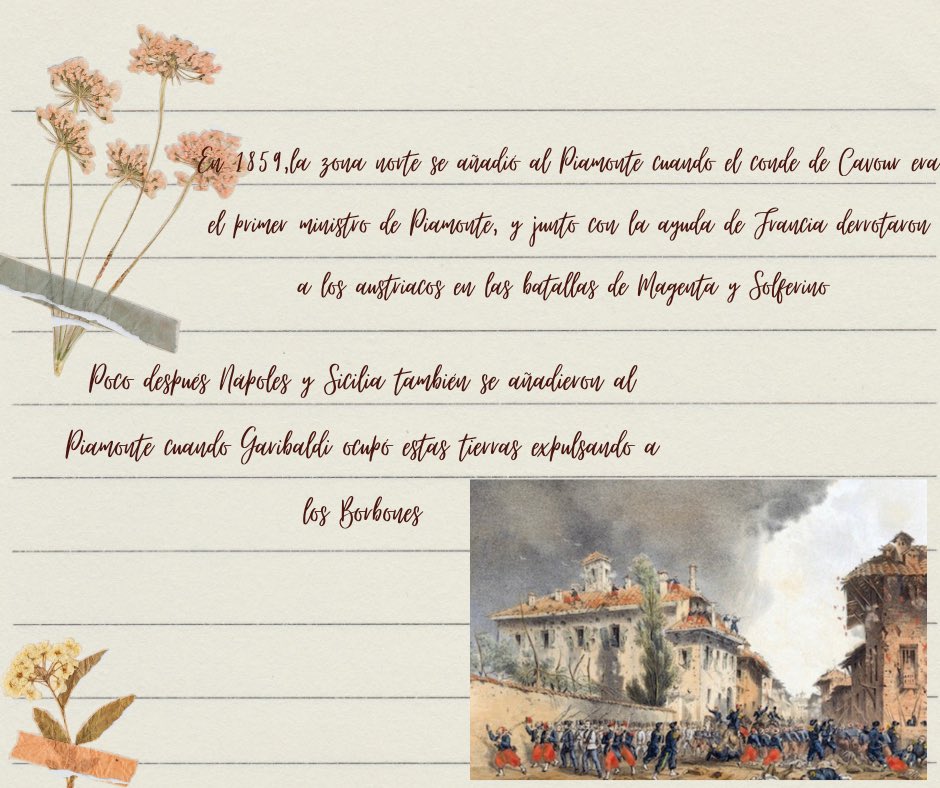 En 1859,la zona norte se añadió al Piamonte cuando el conde de Cavour era
el primer ministro de Piamonte, y junto con la ayuda de Francia derrotaron
a los austriacos en las batallas de Magenta y Solferino
Poco después Nápoles y Sicilia también se añadieron al
Piamonte cuando Garibaldi ocupó estas tierras expulsando a
los Borbones